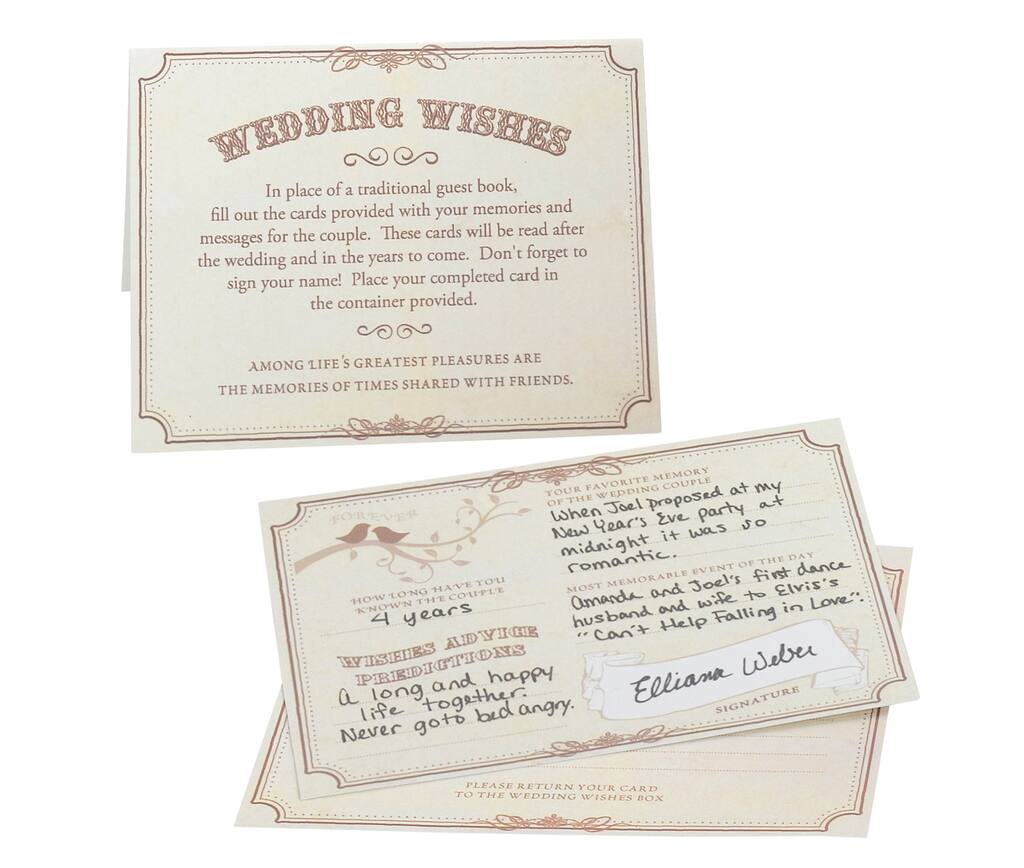 WEDDING WISHES
In place of a traditional guest book,
fill out the cards provided with your memories and
messages for the couple. These cards will be read after
the wedding and in the years to come. Don't forget to
sign your name! Place your completed card in
the container provided.
AMONG LIFE'S GREATEST PLEASURES ARE
THE MEMORIES OF TIMES SHARED WITH FRIENDS.
FOREVER
HOW LONG HAVE YOU
KNOWN THE COUPLE
4 years
WISHES ADVICE
PREDICTIONS
A long and happy
life together.
Never go to bed angry.
YOUR FAVORITE MEMORY
OF THE WEDDING COUPLE
When Joel proposed at my
New Year's Eve party at
midnight it was so
romantic.
MOST MEMORABLE EVENT OF THE DAY
Amanda and Joel's first dance
husband and wife to Elvis's
"Can't Help Falling in Love".
Elliana Weber
SIGNATURE
PLEASE RETURN YOUR CARD
TO THE WEDDING WISHES BOX